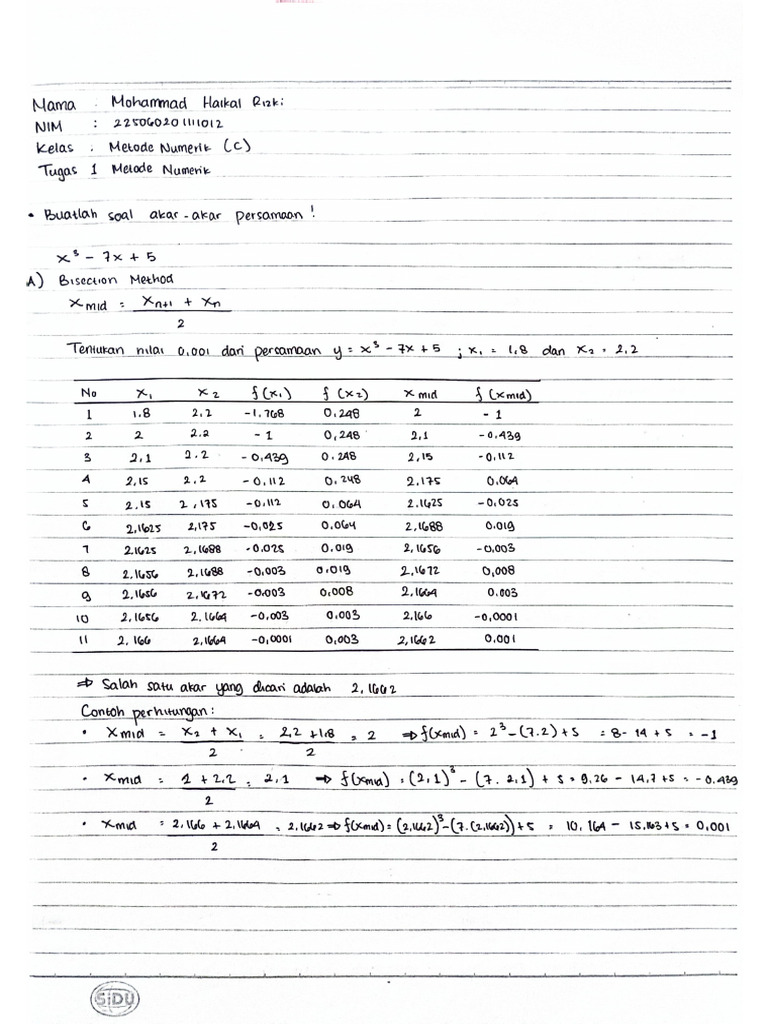 Nama : Mohammad Haikal Rizki
NIM : 225060201111012
Kelas : Metode Numerik (C)
Tugas 1 Metode Numerik
• Buatlah soal akar-akar persamaan!
x³ - 7x + 5
A) Bisection Method
x mid = (x n+1 + x n) / 2
Tentukan nilai 0.001 dari persamaan y = x³ - 7x + 5 ; x₁ = 1,8 dan x₂ = 2,2
No x₁ x₂ f(x₁) f(x₂) x mid f(x mid)
1 1.8 2,2 -1,768 0,248 2 -1
2 2 2.2 -1 0,248 2,1 -0,439
3 2,1 2.2 -0,439 0.248 2,15 -0,112
4 2,15 2,2 -0,112 0,248 2,175 0,064
5 2.15 2,175 -0,112 0,064 2.1625 -0,025
6 2,1625 2,175 -0,025 0,064 2,1688 0.019
7 2.1625 2,1688 -0.025 0,019 2,1656 -0,003
8 2,1656 2,1688 -0,003 0,019 2,1672 0,008
9 2,1656 2,1672 -0.003 0,008 2,1664 0.003
10 2,1656 2,1664 -0,003 0,003 2,166 -0,0001
11 2,166 2,1664 -0,0001 0,003 2,1662 0.001
⇒ Salah satu akar yang dicari adalah 2,1662
Contoh perhitungan :
• x mid = (x₂ + x₁) / 2 = (2,2 + 1.8) / 2 = 2 ⇒ f(x mid) = 2³ - (7.2) + 5 = 8 - 14 + 5 = -1
• x mid = (2 + 2,2) / 2 = 2,1 ⇒ f(x mid) = (2,1)³ - (7. 2,1) + 5 = 9,26 - 14,7 + 5 = -0.439
• x mid = (2,166 + 2,1664) / 2 = 2,1662 ⇒ f(x mid) = (2,1662)³ - (7.(2,1662)) + 5 = 10,164 - 15,163 + 5 = 0,001
SiDU